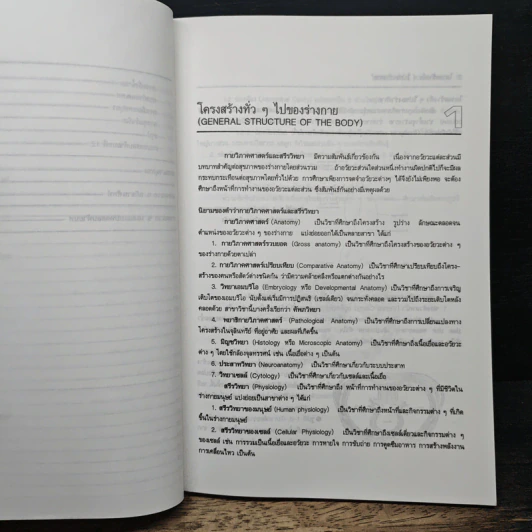 โครงสร้างทั่ว ๆ ไปของร่างกาย
(GENERAL STRUCTURE OF THE BODY)
1
กายวิภาคศาสตร์และสรีรวิทยา มีความสัมพันธ์เกี่ยวข้องกัน เนื่องจากอวัยวะแต่ละส่วนมี
บทบาทสำคัญต่อสุขภาพของร่างกายโดยส่วนรวม ถ้าอวัยวะส่วนใดส่วนหนึ่งทำงานผิดปกติไปก็จะมีผล
กระทบกระเทือนต่อสุขภาพโดยทั่วไปด้วย การศึกษาเพียงการจดจำอวัยวะต่างๆ ได้จึงยังไม่เพียงพอ จะต้อง
ศึกษาถึงหน้าที่การทำงานของอวัยวะแต่ละส่วน ซึ่งสัมพันธ์กันอย่างมีเหตุผลด้วย
นิยามของคำว่ากายวิภาคศาสตร์และสรีรวิทยา
กายวิภาคศาสตร์ (Anatomy) เป็นวิชาที่ศึกษาถึงโครงสร้าง รูปร่าง ลักษณะตลอดจน
ตำแหน่งของอวัยวะต่าง ๆ ของร่างกาย แบ่งย่อยออกได้เป็นหลายสาขา ได้แก่
1. กายวิภาคศาสตร์รวบยอด (Gross anatomy) เป็นวิชาที่ศึกษาถึงโครงสร้างของอวัยวะต่าง ๆ
ของร่างกายด้วยตาเปล่า
2. กายวิภาคศาสตร์เปรียบเทียบ (Comparative Anatomy) เป็นวิชาที่ศึกษาเปรียบเทียบถึงโครง-
สร้างของคนหรือสัตว์ต่างชนิดกัน ว่ามีความคล้ายคลึงหรือแตกต่างกันอย่างไร
3. วิทยาเอมบริโอ (Embryology หรือ Developmental Anatomy) เป็นวิชาที่ศึกษาถึงการเจริญ
เติบโตของเอมบริโอ นับตั้งแต่เริ่มมีการปฏิสนธิ (เซลล์เดียว) จนกระทั่งคลอด และรวมไปถึงระยะเติบโตหลัง
คลอดด้วย สาขาวิชานี้บางครั้งเรียกว่า คัพภวิทยา
4. พยาธิกายวิภาคศาสตร์ (Pathological Anatomy) เป็นวิชาที่ศึกษาถึงการเปลี่ยนแปลงทาง
โครงสร้างในจุลินทรีย์ ที่อยู่อาศัย และผลที่เกิดขึ้น
5. มิญชวิทยา (Histology หรือ Microscopic Anatomy) เป็นวิชาที่ศึกษาถึงเนื้อเยื่อและอวัยวะ
ต่าง ๆ โดยใช้กล้องจุลทรรศน์ เช่น เนื้อเยื่อต่าง ๆ เป็นต้น
6. ประสาทวิทยา (Neuroanatomy) เป็นวิชาที่ศึกษาเกี่ยวกับระบบประสาท
7. วิทยาเซลล์ (Cytology) เป็นวิชาที่ศึกษาเกี่ยวกับเซลล์และเนื้อเยื่อ
สรีรวิทยา (Physiology) เป็นวิชาที่ศึกษาถึง หน้าที่การทำงานของอวัยวะต่าง ๆ ที่มีชีวิตใน
ร่างกายมนุษย์ แบ่งย่อยเป็นสาขาต่าง ๆ ได้แก่
1. สรีรวิทยาของมนุษย์ (Human physiology) เป็นวิชาที่ศึกษาถึงหน้าที่และกิจกรรมต่าง ๆ ที่เกิด
ขึ้นในร่างกายมนุษย์
2. สรีรวิทยาของเซลล์ (Cellular Physiology) เป็นวิชาที่ศึกษาถึงเซลล์เดียวและกิจกรรมต่าง ๆ
ของเซลล์ เช่น การรวมเป็นเนื้อเยื่อและอวัยวะ การหายใจ การขับถ่าย การดูดซึมอาหาร การสร้างพลังงาน
การเคลื่อนไหว เป็นต้น